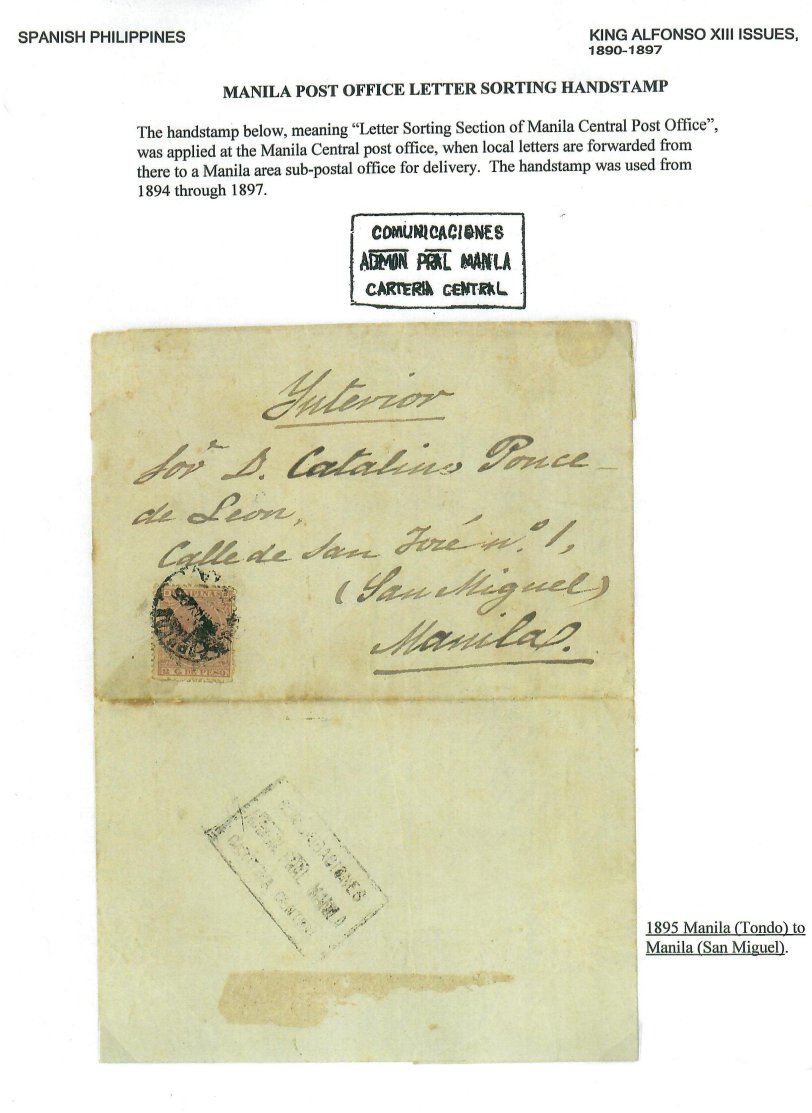 SPANISH PHILIPPINES
KING ALFONSO XIII ISSUES,
1890-1897
MANILA POST OFFICE LETTER SORTING HANDSTAMP
The handstamp below, meaning “Letter Sorting Section of Manila Central Post Office”,
was applied at the Manila Central post office, when local letters are forwarded from
there to a Manila area sub-postal office for delivery. The handstamp was used from
1894 through 1897.
COMUNICACIONES
ADMON PRAL MANILA
CARTERIA CENTRAL
Interior
Sor D. Catalino Ponce
de Leon,
Calle de San José nº. 1,
(San Miguel)
Manila.
FILIPINAS
C. DE PESO
COMUNICACIONES
ADMON PRAL MANILA
CARTERIA CENTRAL
1895 Manila (Tondo) to
Manila (San Miguel).